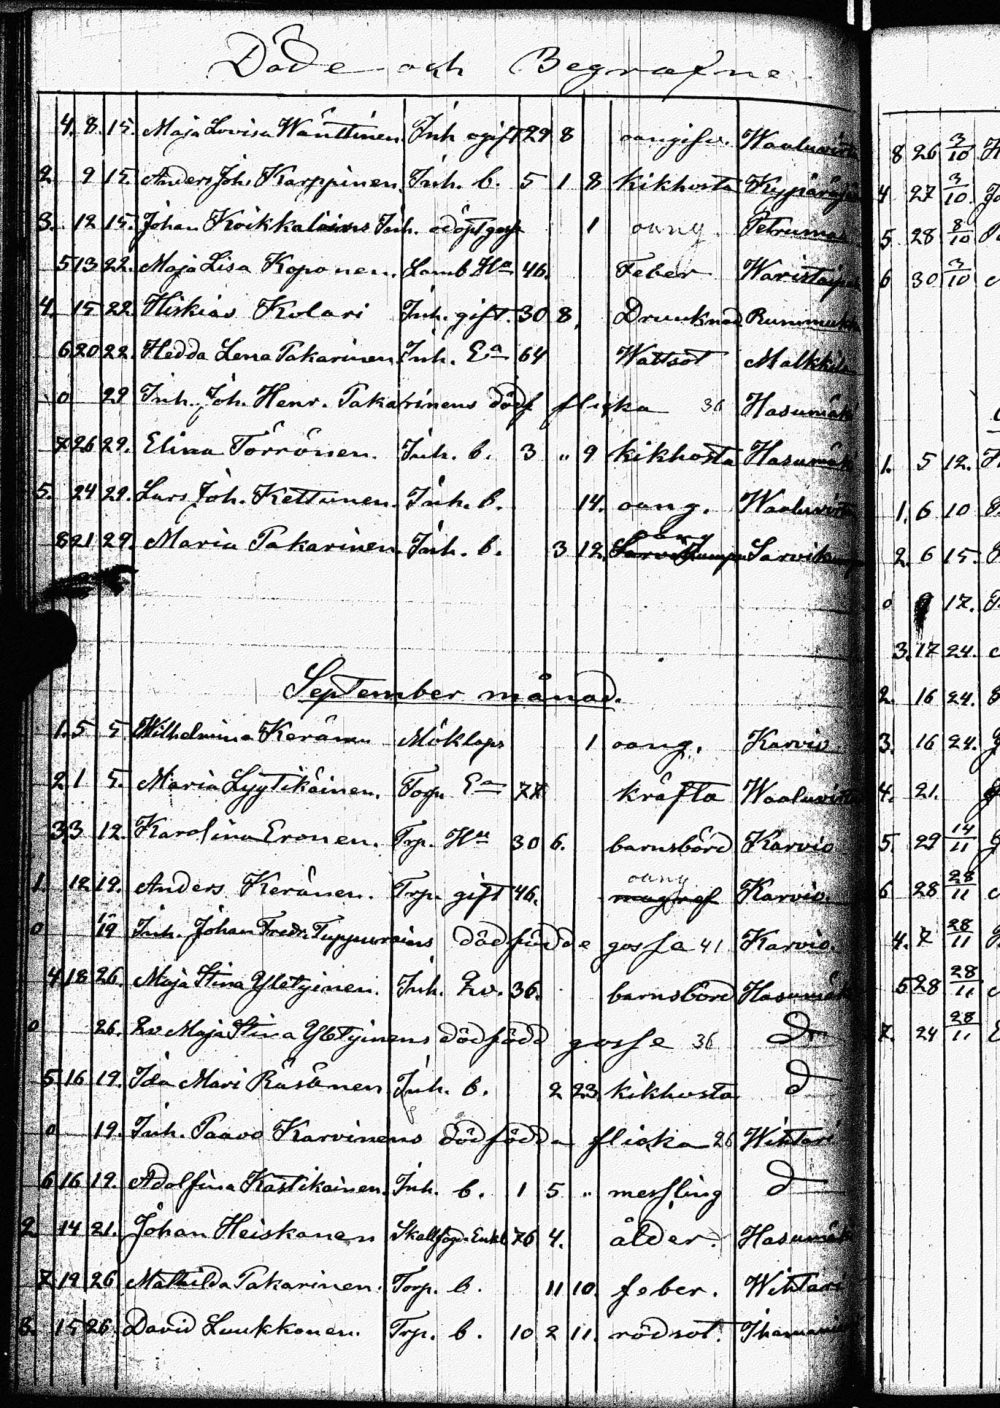 Döde och Begrafne
4. 8. 15. Maja Lovisa Wänttinen Inh ogift 29 8 oangifv.
2 9 15. Anders Joh. Karppinen Inh. b. 5 1 8 kikhosta
3. 12 15. Johan Inh. odöpt gosse 1 oang.
5 13 22. Maja Lisa Koponen. 46. Feber
4. 15 22. Hiskias Kolari Inh. gift. 30 8, Drunknad
6 20 22. Hedda Lena Pakarinen Inh. Ea 64 Wattsot
0 29 Inh. Joh. Henr. Pakarinens dödf flicka 36 Hasumäki
7 26 29. Elina Törrönen. Inh. b. 3 " 9 kikhosta Hasumäki
5. 24 29. Lars Joh. Kettunen. Inh. b. 14. oang.
8 21 29. Maria Pakarinen Inh. b. 3 12. oang Sarvikumpu
September månad.
1. 5 5. Wilhelmina Keränen 1 oang. Karvio
2 1 5. Maria Lyytikäinen. Torp. Ea 77 kräfta
3 3 12. Karolina Eronen. Trp. Ha 30 6. barnsbörd Karvio
1. 12 19. Anders Keränen. Trp. gift 46. oang Karvio.
0 19 Inh. Johan Fredr. Tuppurains dödfödde gosse 41 Karvio.
4 18 26. Maja Stina Yletyinen. Inh. Qv. 36. barnsbörd Hasumäki
0 26. Qv Maja Stina Yletyinens dödfödd gosse 36 Do
5 16 19. Ida Mari Räsänen Inh. b. 2 23 kikhosta d
0 19. Inh. Paavo Karvinens dödfödda flicka 26 Wihtari
6 16 19. Adolfina Kastikainen. Inh. b. 1 5 " messling d
2 14 21. Johan Heiskanen Enkl. 76 4. ålder. Hasumäki
7 19 26 Mathilda Pakarinen. Torp. b. 11 10 feber. Wihtari
8. 15 26. David Luukkonen. Trp. b. 10 2 11. rödsot.
8 26 3/10
4 27 3/10.
5 28 8/10
6 30 3/10
1. 5 12.
1. 6 10
2. 6 15.
0 17.
3. 17 24.
2. 16 24.
3. 16 24.
4. 21.
5. 29 14/11
6 28 28/11
4. 7 28/11
5 28 28/11
7. 24 28/11